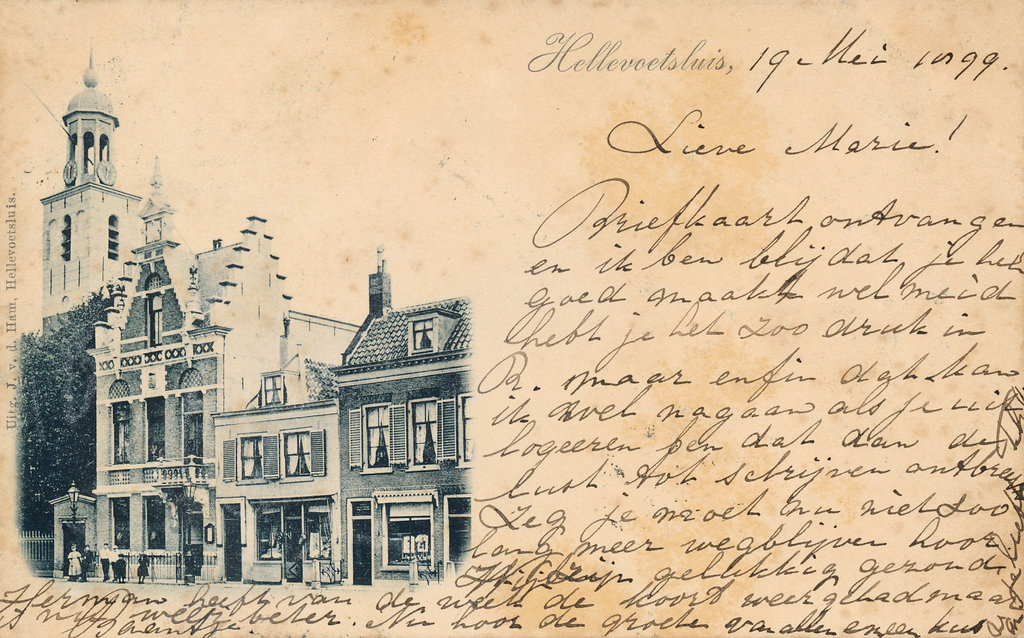 Hellevoetsluis, 19 Mei 1899.
Lieve Marie!
Briefkaart ontvangen
en ik ben blij dat je het
goed maakt wel meid
hebt je het zoo druk in
R. maar enfin dat kan
ik wel nagaan als je uit
logeeren ben dat dan de
lust tot schrijven ontbree
Zeg je moet nu niet zoo
lang meer wegblijven hoor
Wij zijn gelukkig gezond
Herman heeft van de week de koorts weer gehad maar
is nu weer beter. Nu hoor de groete van allen en een kus
van je
Jaantje.
Uitg. J. v. d. Ham, Hellevoetsluis.